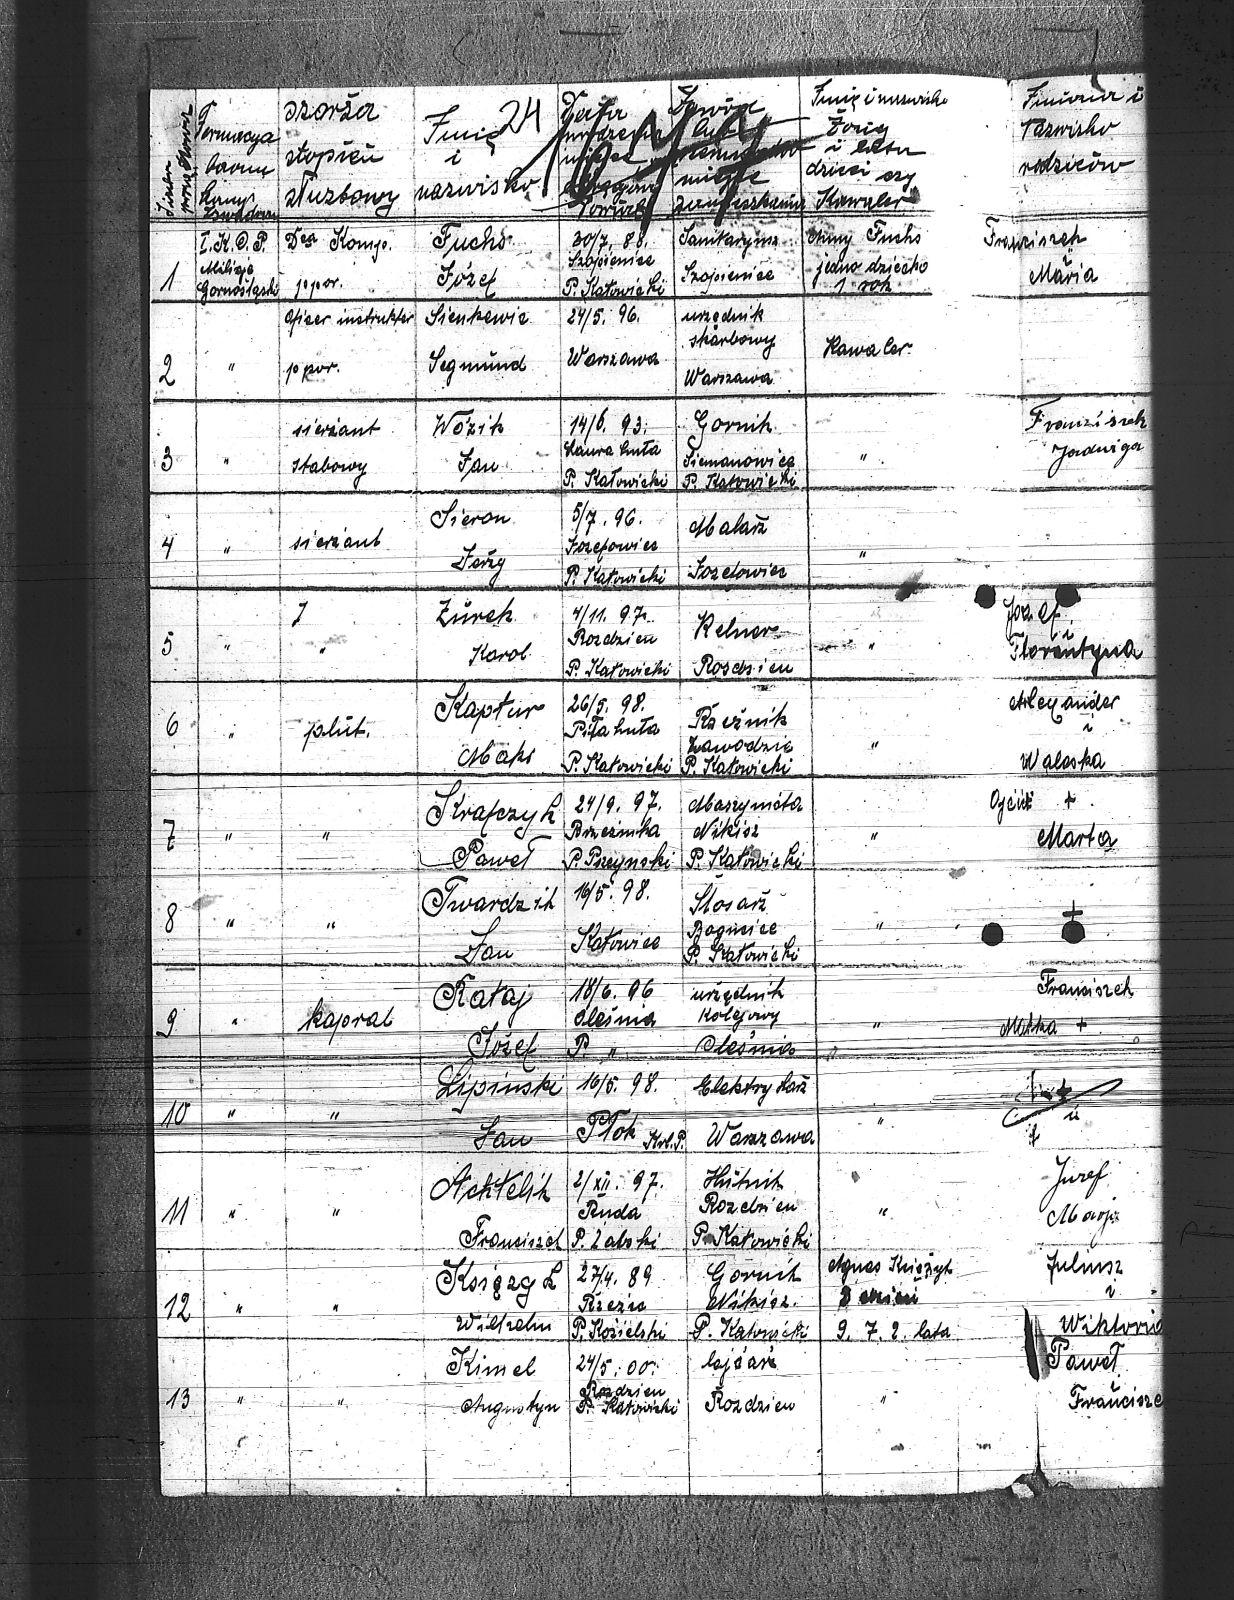 24
szarża
stopień
służbowy
Imię
i
nazwisko
Imię i nazwisko
żony
i lata
dzieci czy
Kawaler
Imiona i
nazwisko
rodziców
1
I. K. O. P.
Milicja
Gornośląski
Dca Komp.
ppor.
Fuchs
Józef
30/7. 88.
Szopienice
P. Katowicki
Sanitarjusz
Szopienice
Anny Fuchs
jedno dziecko
1 rok
Franziszek
i
Maria
2
"
oficer instrukter
ppor.
Sienkewic
Segmund
24/5. 96.
Warszawa
urzędnik
skarbowy
Warszawa
Kawaler.
3
"
sierżant
stabowy
Wózik
Jan
14/6. 93.
Laura huta
P. Katowicki
Gornik
Siemanowice
P. Katowicki
"
Franziszek
Jadwiga
4
"
sierżant
Sieron
Jerzy
5/7. 96.
Józefowiec
P. Katowicki
Malarz
Jozefowiec
"
5
"
"
Żurek
Karol
4/11. 97.
Rozdzien
P. Katowicki
Kelner
Rosdzien
"
Jozef.
i
Florentyna
6
"
plut.
Kaptur
Maks
26/5. 98.
Piła huta
P. Katowicki
Rzeźnik
Zawodzie
P. Katowicki
"
Alexander
i
Waleska
7
"
"
Krafczyk
Paweł
24/9. 97.
Brzezinka
P. Pszcynski
Maszynista
Nikisz
P. Katowicki
"
Ojciec +
Marta
8
"
"
Twardzik
Jan
16/5. 98.
Katowice
Słosarz
Bogucice
P. Katowicki
"
+
9
"
kapral
Rataj
Józef
18/6. 96
Oleśnia
P "
urzędnik
kolejowy
Oleśnia
"
Fransiszek
Matka +
10
"
"
Lipinski
Jan
16/5. 98.
Płok Krl. P.
Elektrykarz
Warszawa
"
11
"
"
Achtelik
Fransiszek
2/XII. 97.
Ruda
P. Zabski
Hutnik
Rozdzien
P. Katowicki
"
Juzef
Marja
12
"
"
Książyk
Wilhelm
27/4. 89
Rzezie
P. Kozielski
Gornik
Nikisz.
P. Katowicki
Agnes Książyk
3 dzieci
9. 7. 2. lata
Juliusz
i
Wiktoria
13
"
"
Kimel
Augustyn
24/5. 00.
Rozdzien
P. Katowicki
Rozdzien
"
Paweł
i
Francisze